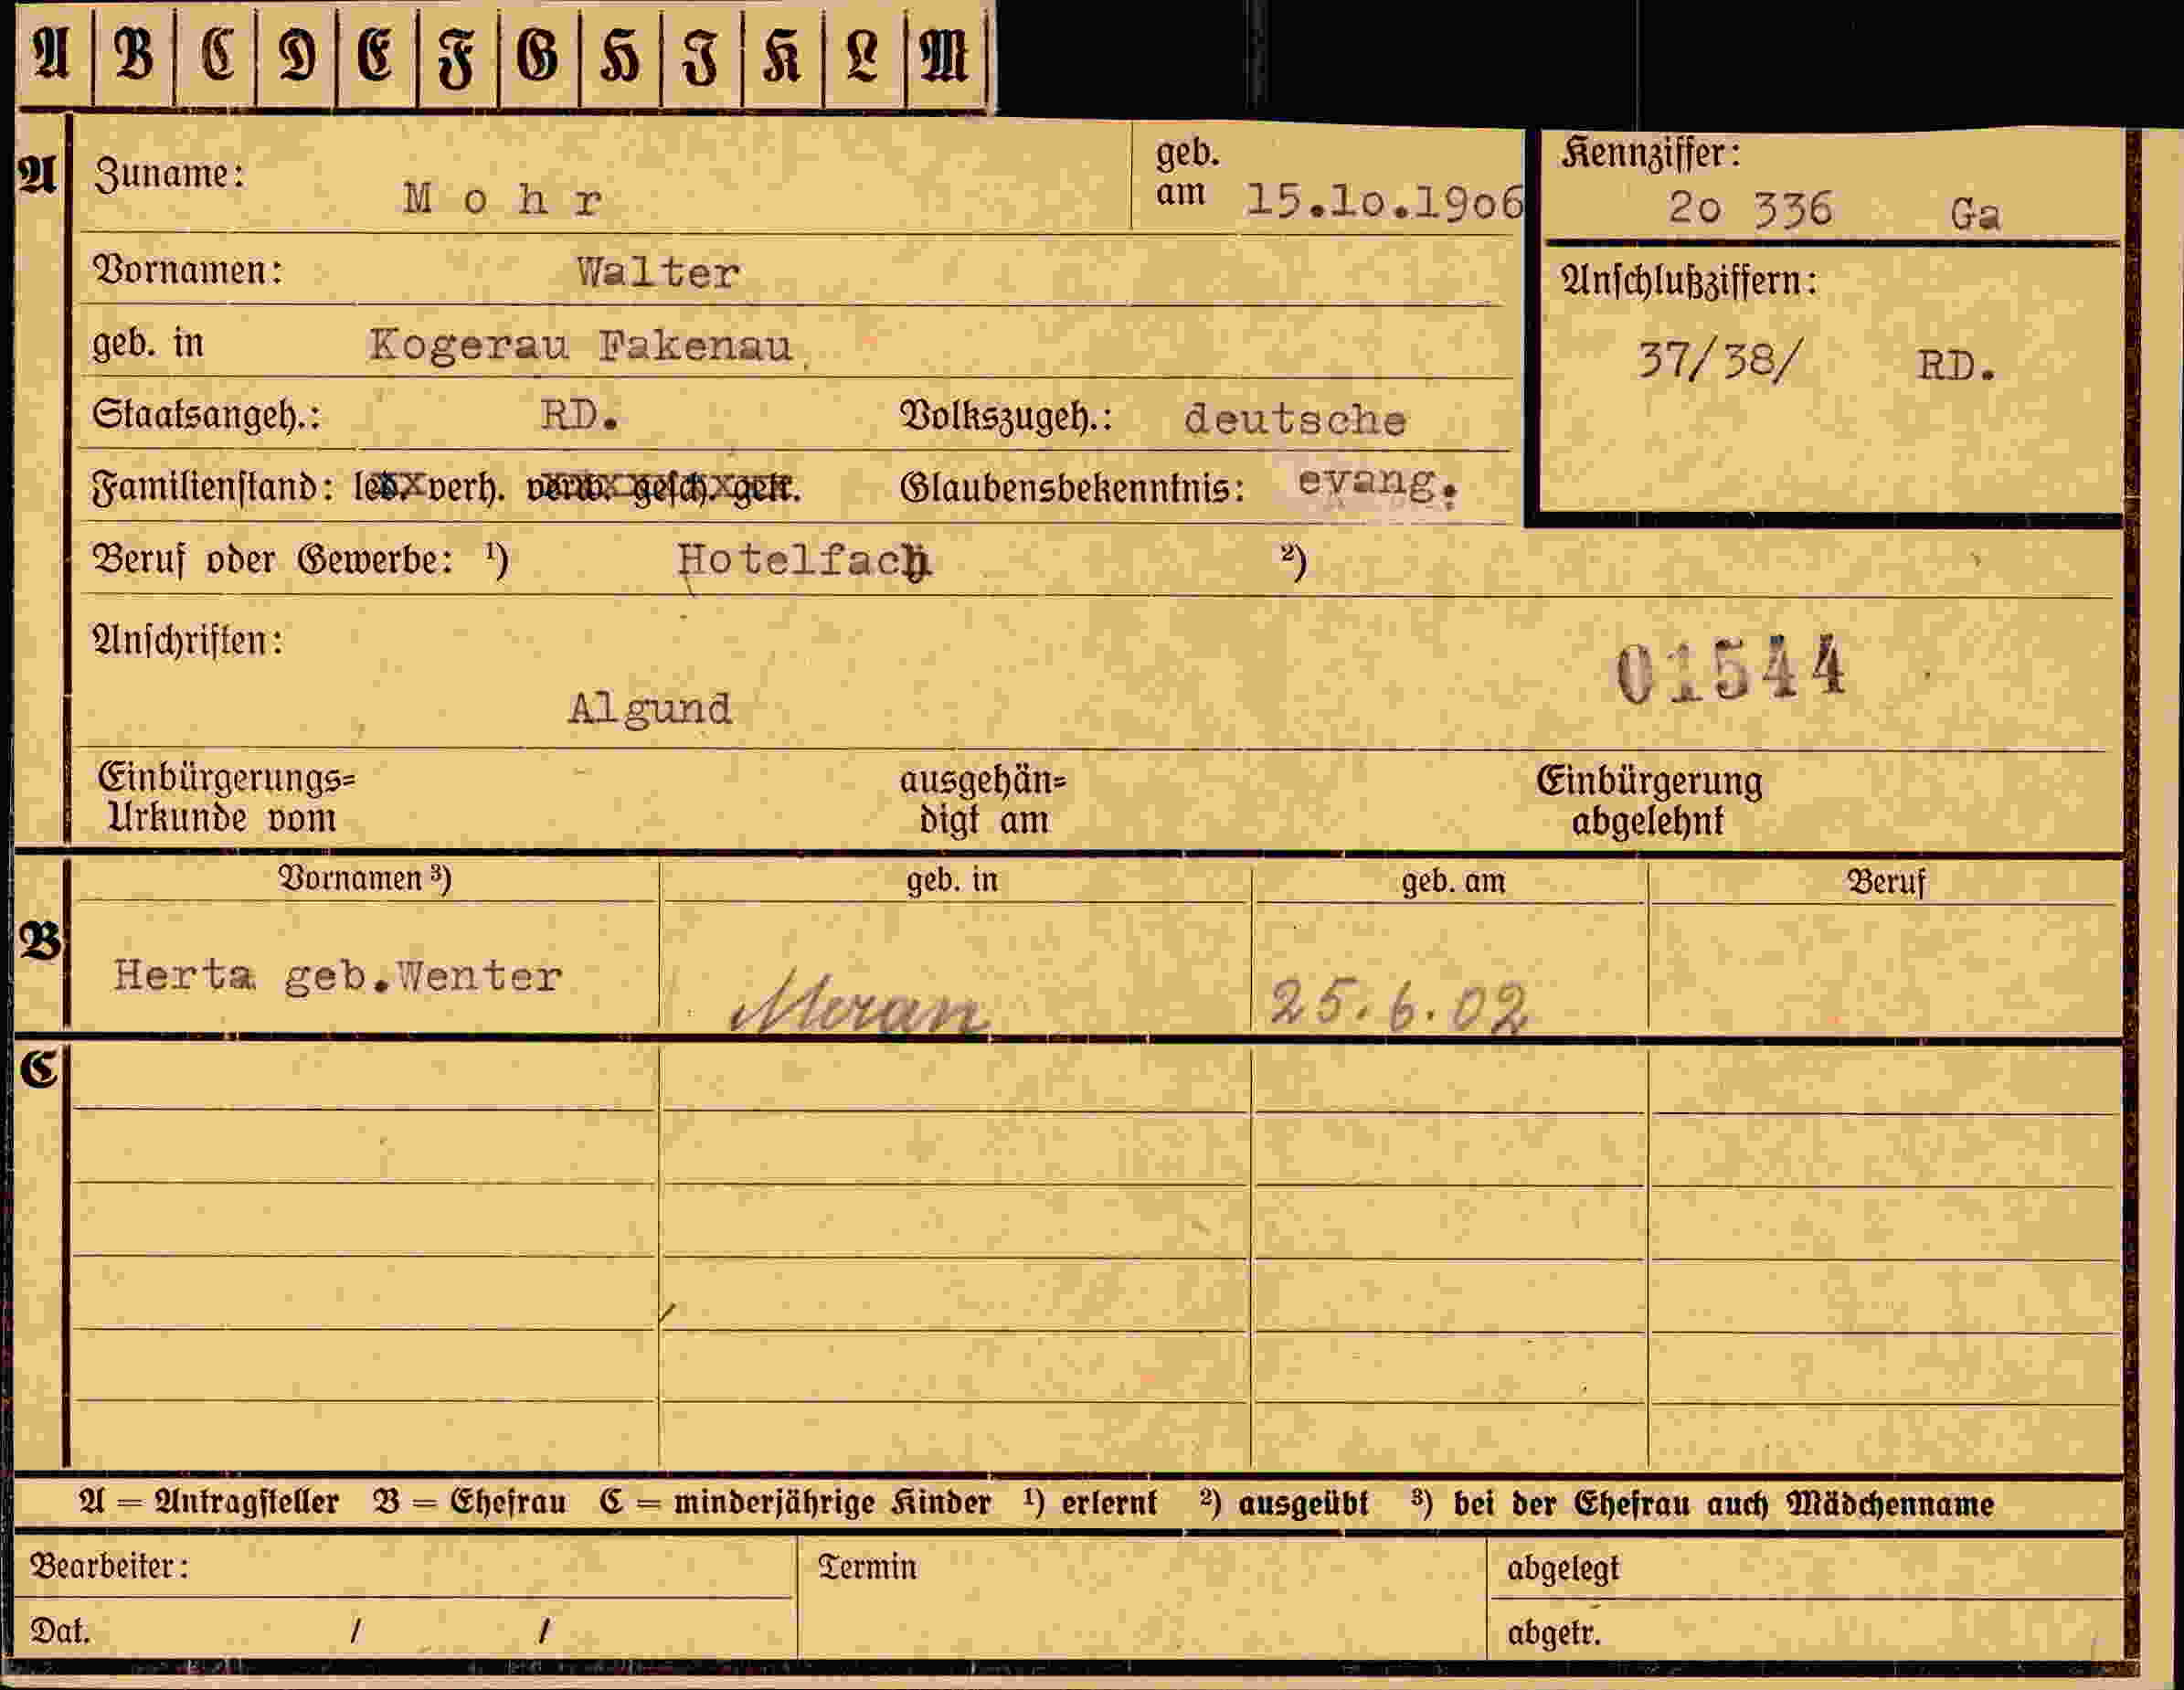 A B C D E F G H I K L M
A Zuname: Mohr geb. am 15.10.1906 Kennziffer: 20 336 Ga
Vornamen: Walter Anschlußziffern:
geb. in Kogerau Fakenau 37/38/ RD.
Staatsangeh.: RD. Volkszugeh.: deutsche
Familienstand: led. verh. verw. gesch. getr. Glaubensbekenntnis: evang.
Beruf oder Gewerbe: ¹) Hotelfach ²)
Anschriften: 01544
Algund
Einbürgerungs= ausgehän= Einbürgerung
Urkunde vom digt am abgelehnt
Vornamen ³) geb. in geb. am Beruf
B Herta geb.Wenter Meran 25.6.02
C
A = Antragsteller B = Ehefrau C = minderjährige Kinder ¹) erlernt ²) ausgeübt ³) bei der Ehefrau auch Mädchenname
Bearbeiter: Termin abgelegt
Dat. / / abgetr.